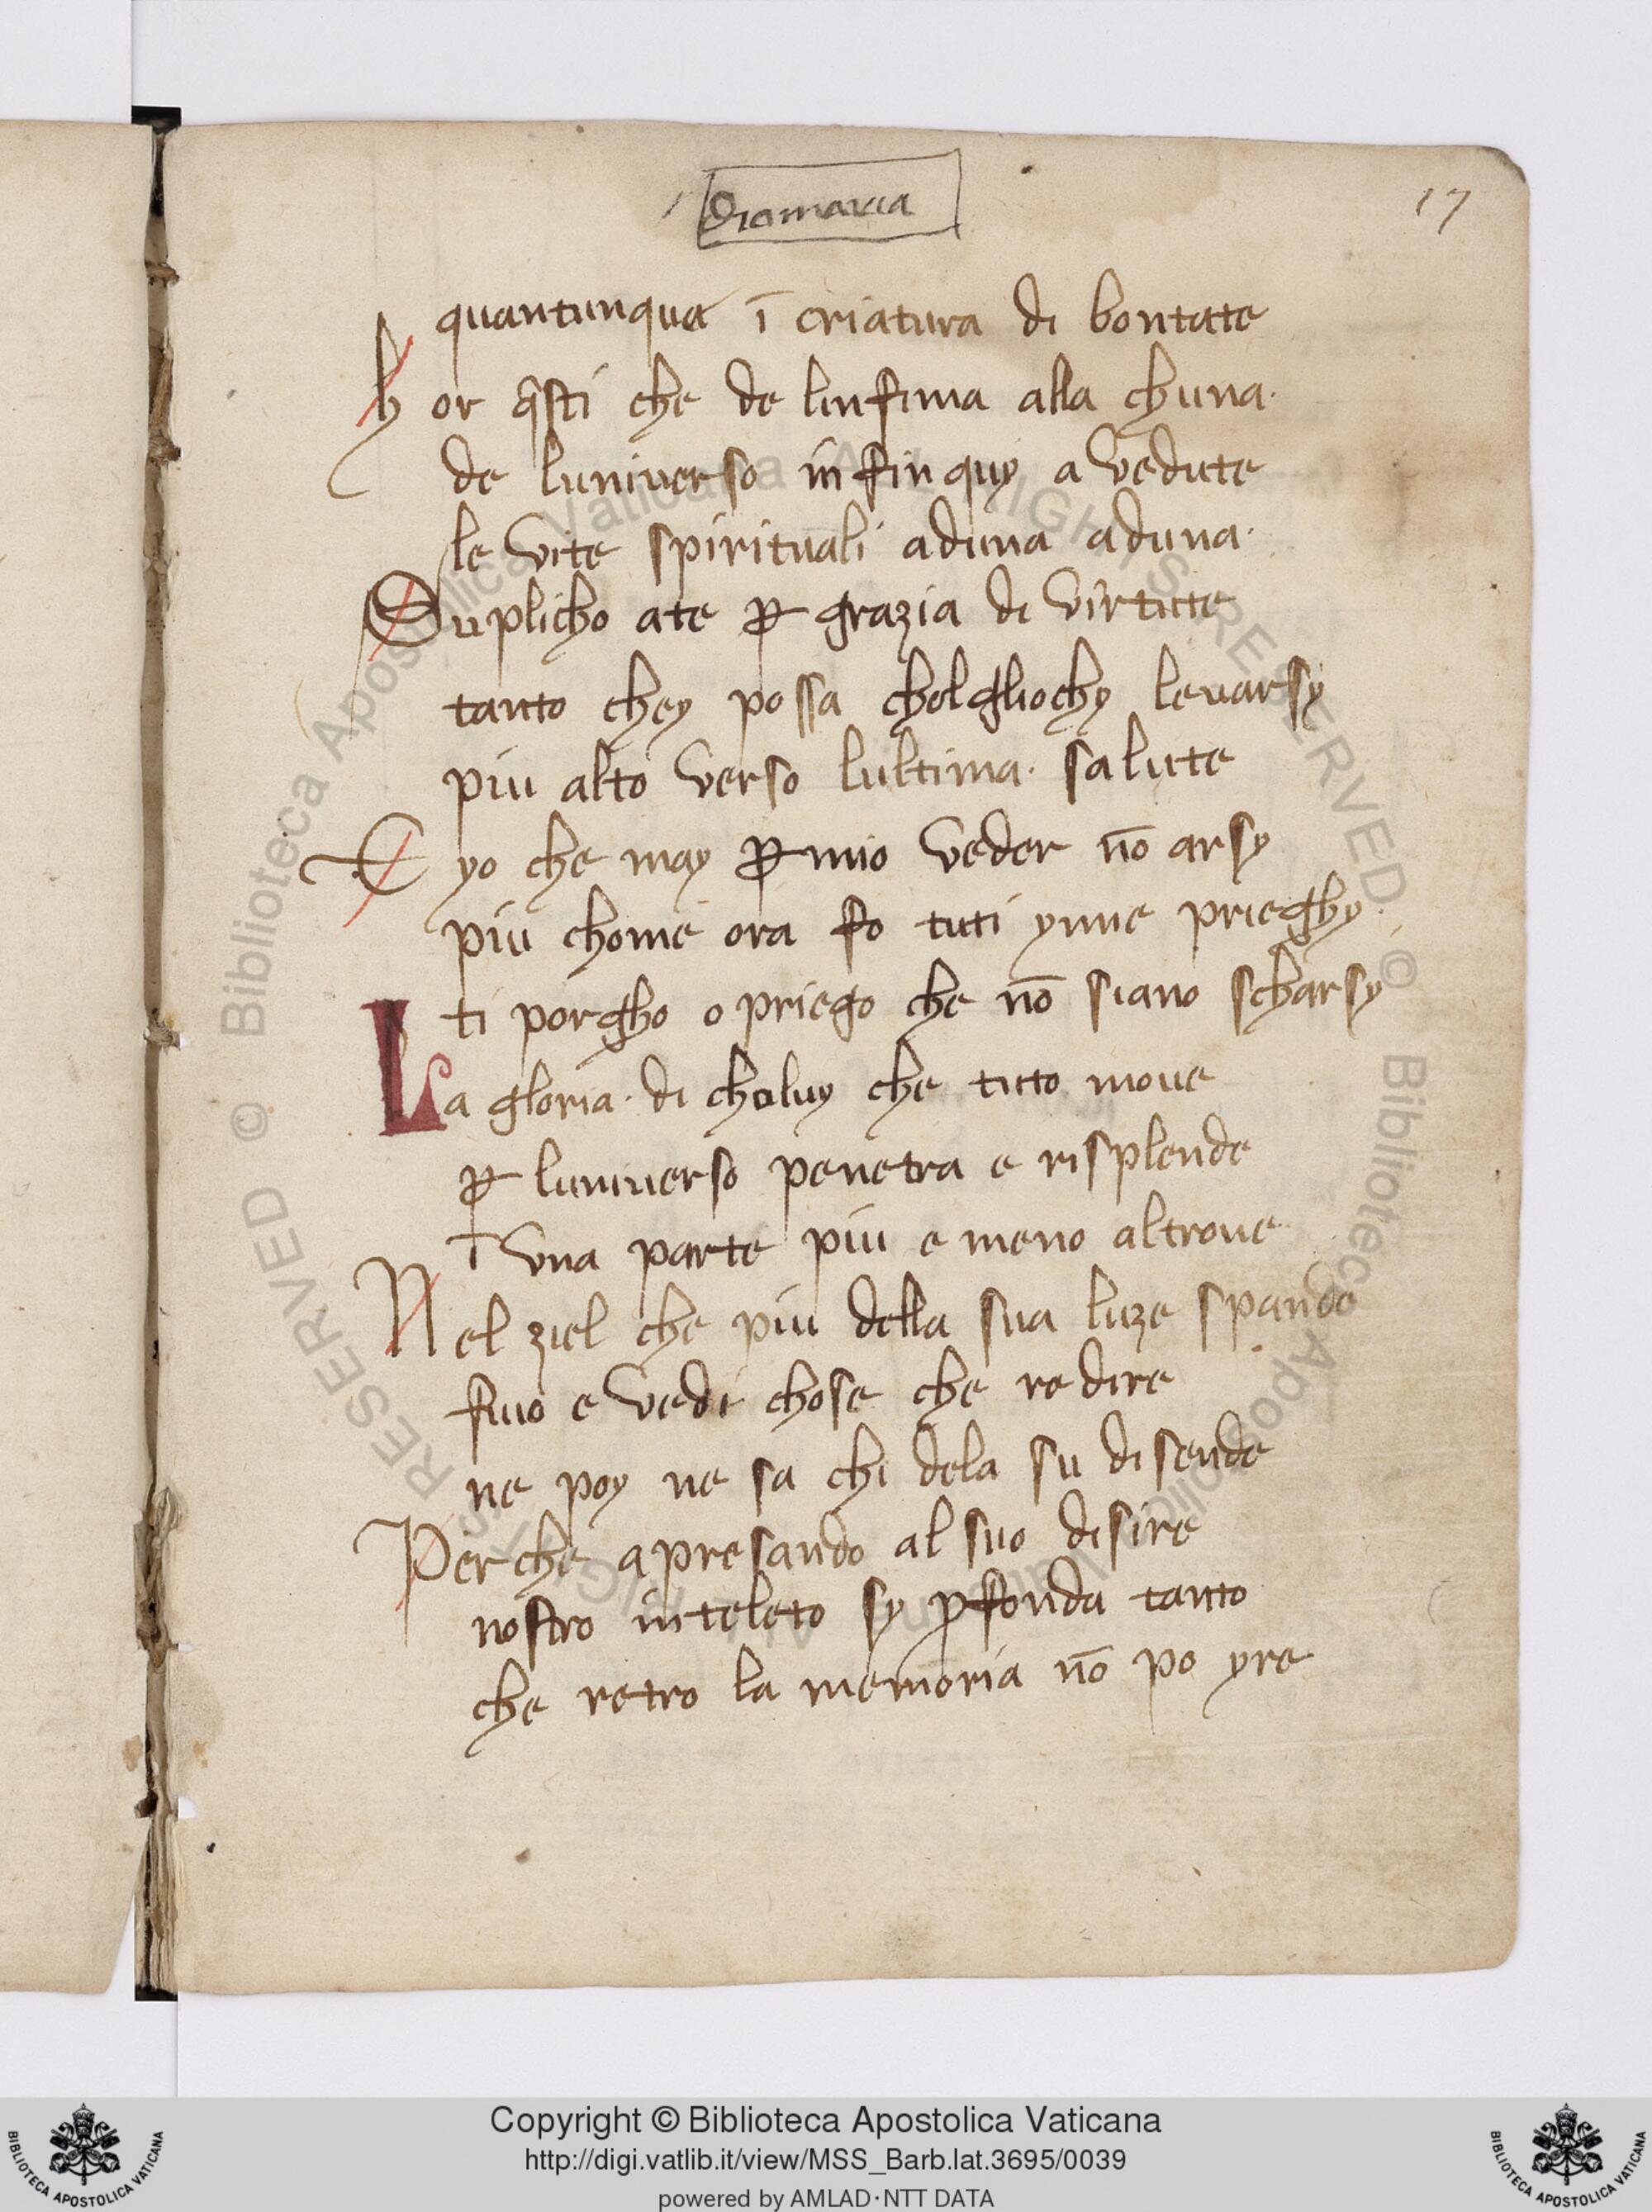 diomaria
17
quantunqua ī criatura di bontate
hor q̄sti che de linfima alla chuna.
de luniverso infin quy a vedute
le vite spirituali aduna aduna.
Suplicho ate ꝑ grazia di virtute
tanto chey possa cholgliochy levarsy
piu alto verso lultima. salute
E yo che may ꝑ mio veder nō arsy
piu chome ora fo tuti ymie prieghy.
ti porgho o priego che nō siano scharsy
La gloria. di choluy che tuto move
ꝑ luniverso penetra e risplende
ī una parte piu e meno altrove
Nel ziel che piu della sua luze spande
fuio e vedi chose che redire
ne poy ne sa chi dela su disende
Perche apresando al suo disire
nostro inteleto sy ꝓfonda tanto
che retro la memoria nō po yre
© Biblioteca Apostolica Vaticana ALL RIGHTS RESERVED © Biblioteca Apostolica Vaticana ALL RIGHTS RESERVED
Copyright © Biblioteca Apostolica Vaticana
http://digi.vatlib.it/view/MSS_Barb.lat.3695/0039
powered by AMLAD·NTT DATA
BIBLIOTECA APOSTOLICA VATICANA
BIBLIOTECA APOSTOLICA VATICANA